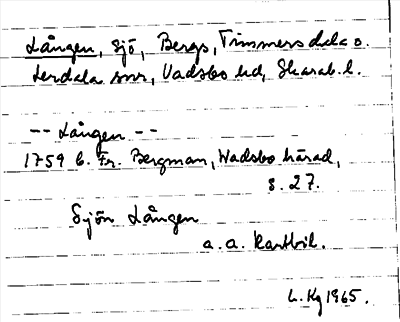 Lången, sjö, Bergs, Timmersdala o.
Lerdala snr, Vadsbo hd, Skarab. l.
-- Lången --
1759 C. Fr. Bergman, Wadsbo härad,
s. 27.
Sjön Lången
a. a. Kartbil.
L. Kg 1965.